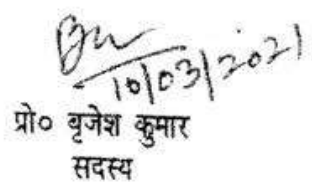 10/03/2021
प्रो० बृजेश कुमार
सदस्य